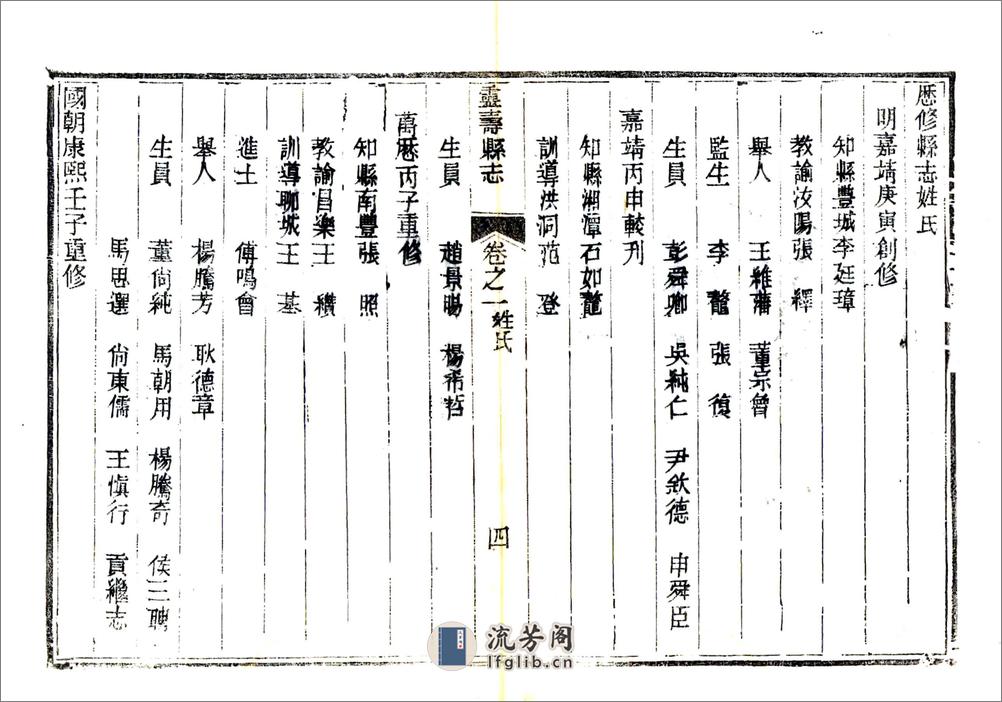 歷修縣志姓氏
明嘉靖庚寅創修
知縣豐城李廷璋
教諭汝陽張　繹
舉人　王維藩　董宗魯
監生　李　鰲　張　復
生員　彭舜卿　吳純仁　尹欽德　申舜臣
嘉靖丙申較刋
知縣湘潭石如鰲
訓導洪洞范　登
生員　趙景暘　楊希哲
靈壽縣志　卷之一　姓氏　四
萬厯丙子重修
知縣南豐張　照
教諭昌樂王　纘
訓導聊城王　基
進士　傅鳴會
舉人　楊騰芳　耿德章
生員　董尙純　馬朝用　楊騰奇　侯三聘
馬思選　尙東儒　王愼行　貢繼志
國朝康熙壬子重修
流芳阁
lfglib.cn